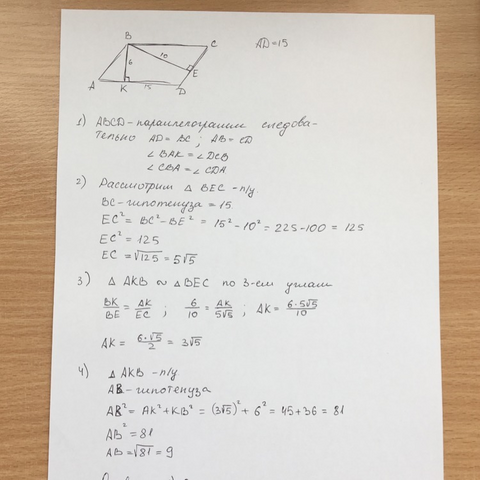 B C AD=15
6 10
E
A K 15 D
1) ABCD - параллелограмм следова-
тельно AD = BC ; AB = CD
∠BAK = ∠DCB
∠CBA = ∠CDA
2) Рассмотрим △ BEC - п/у
BC - гипотенуза = 15
EC² = BC² - BE² = 15² - 10² = 225 - 100 = 125
EC² = 125
EC = √125 = 5√5
3) △ AKB ∾ △BEC по 3-ем углам
BK/BE = AK/EC ; 6/10 = AK/5√5 ; AK = 6·5√5/10
AK = 6·√5/2 = 3√5
4) △ AKB - п/у
AB - гипотенуза
AB² = AK² + KB² = (3√5)² + 6² = 45 + 36 = 81
AB² = 81
AB = √81 = 9